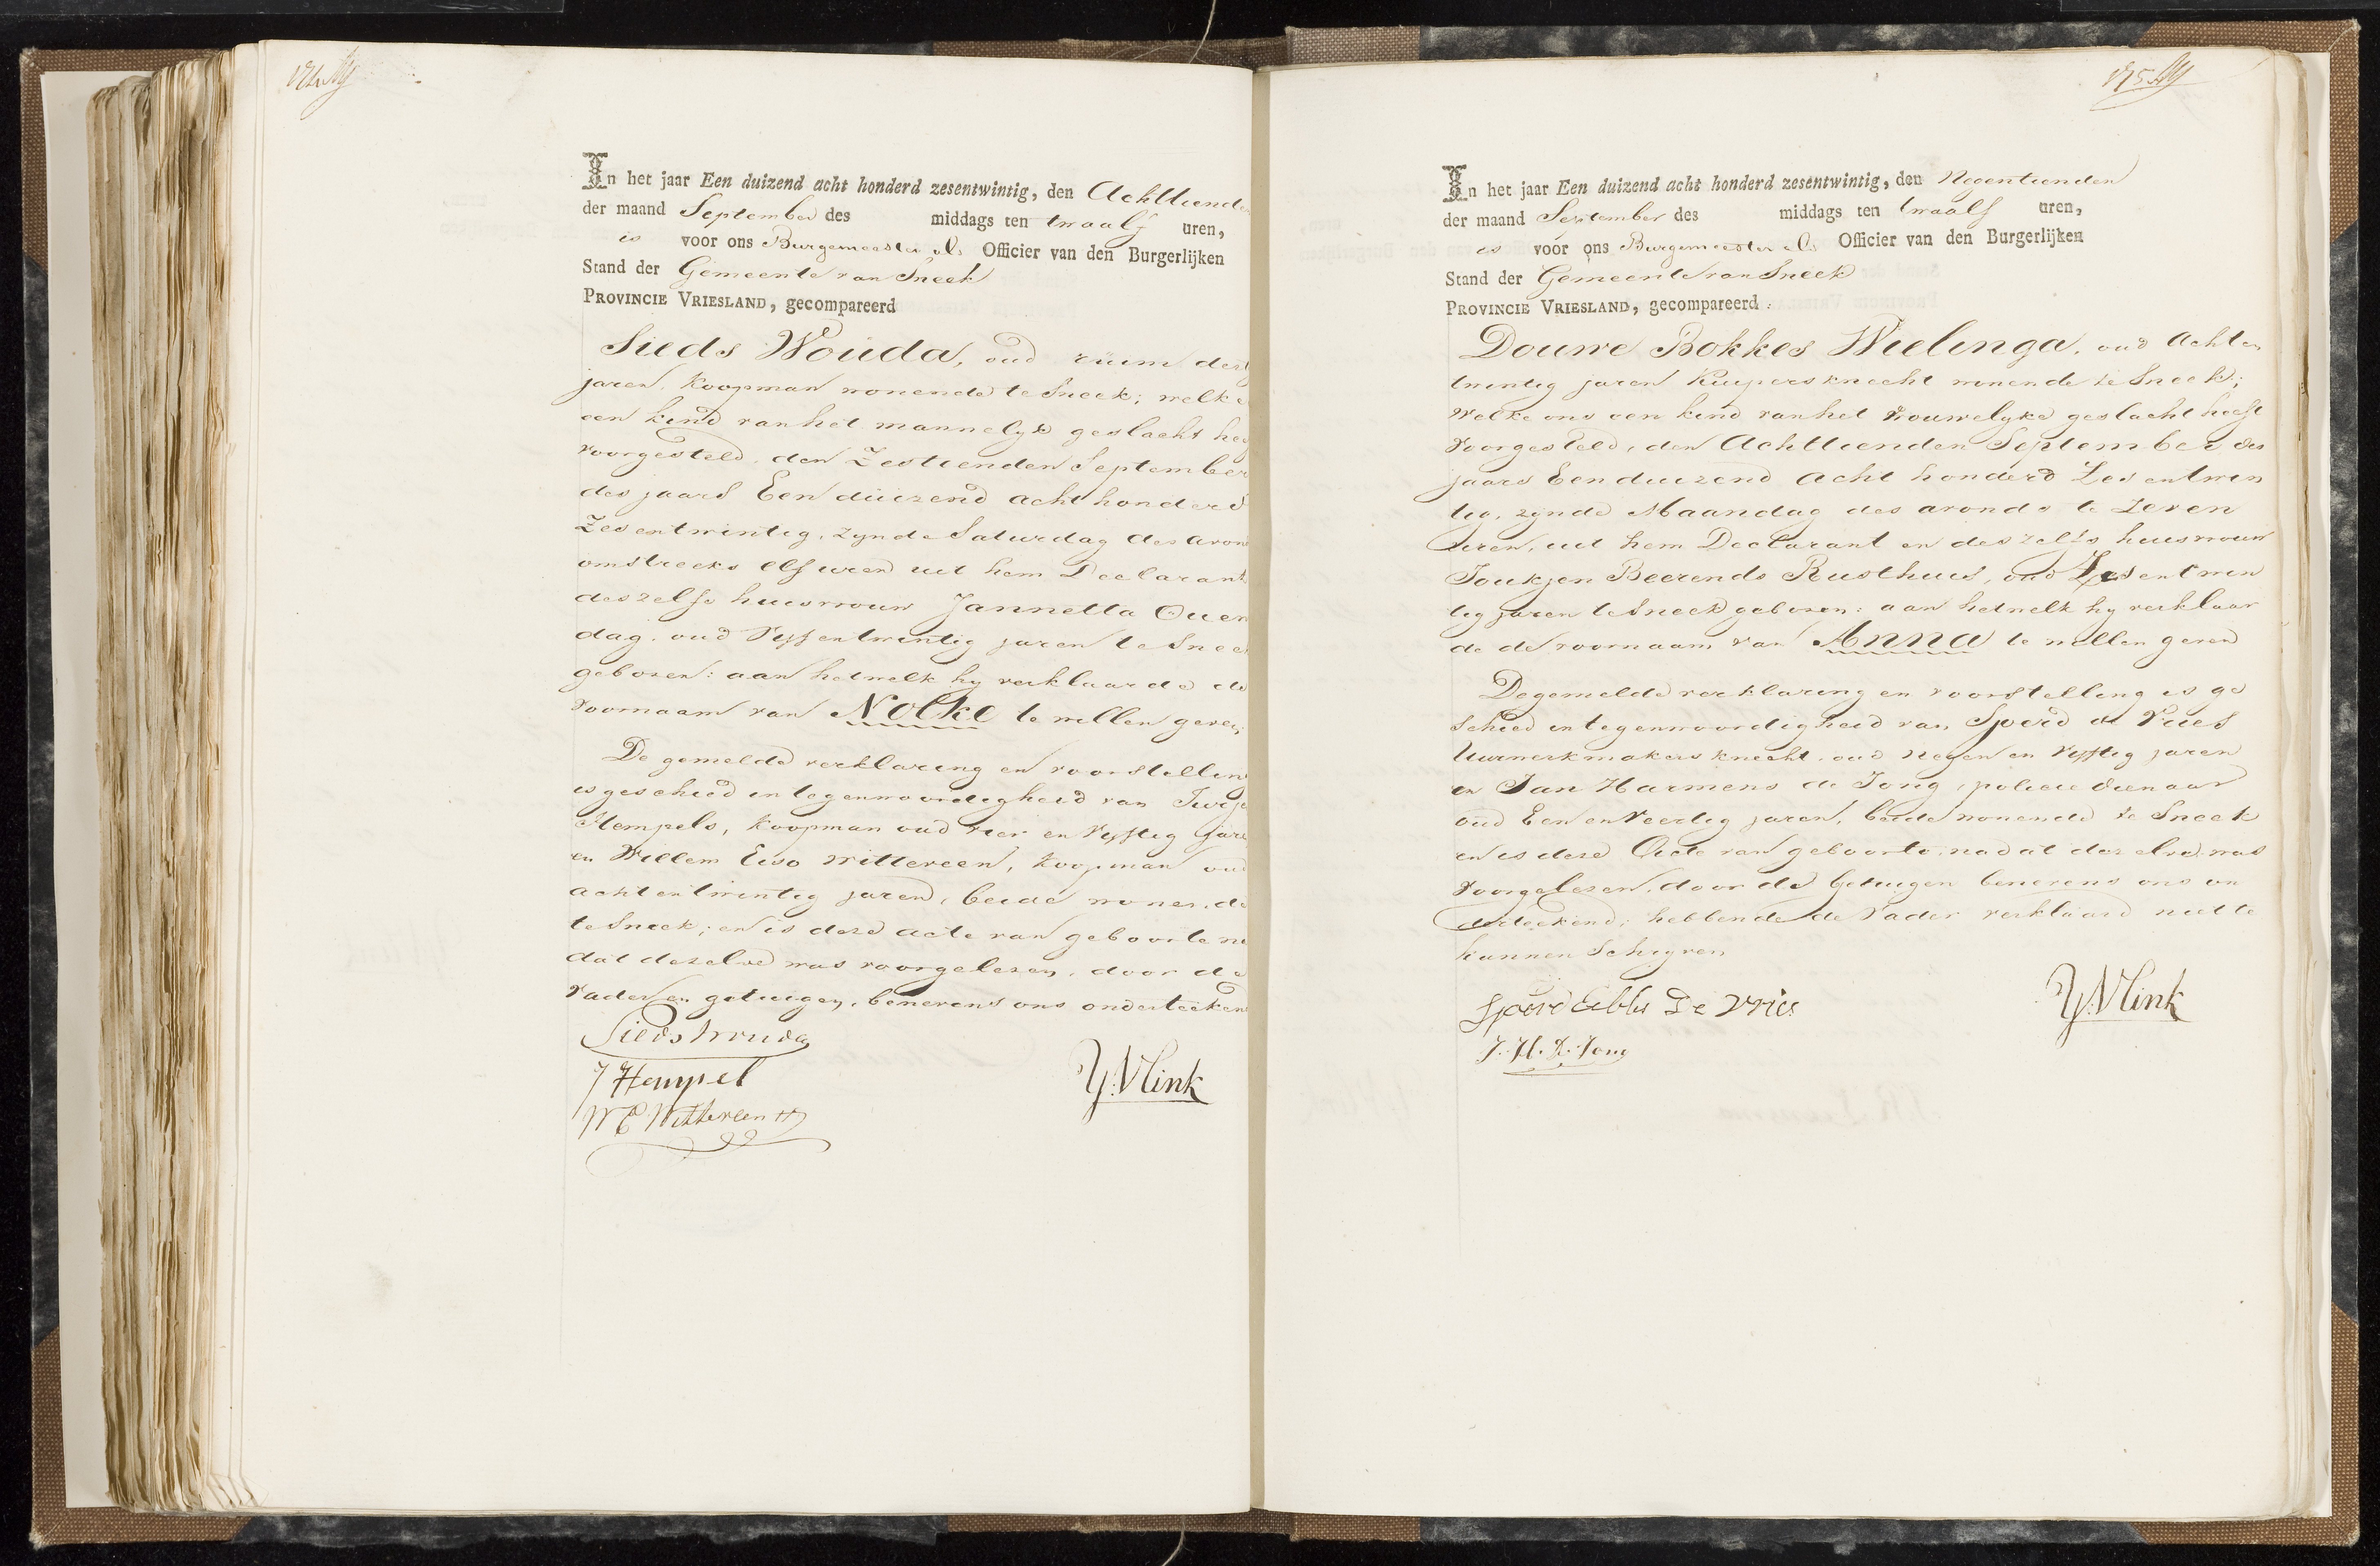 174
In het jaar Een duizend acht honderd zesentwintig, den Achttiende
der maand September des middags ten twaalf uren,
is voor ons Burgemeester als Officier van den Burgerlijken
Stand der Gemeente van Sneek
PROVINCIE VRIESLAND, gecompareerd
Sieds Wouda, oud ruim dert
jaren, Koopman wonende te Sneek; welke
een kind van het mannelyk geslacht hee
voorgesteld, den Zestienden September
des jaars Een duizend acht honderd
Zesentwintig, zynde Saturdag des avon
omstreeks elf uren uit hem Declarant
deszelfs huisvrouw Jannetta Ouen
dag, oud Vyfentwintig jaren te Snee
geboren: aan hetwelk hy verklaarde de
voornaam van Nolke te willen geven;
De gemelde verklaring en voorstelling
is geschied in tegenwoordigheid van
Hempels, koopman oud vier en Vyftig jare
en Willem Eiso Wittereen, koopman oud
achtentwintig jaren, beide wonende
te Sneek; en is deze acte van geboorte na
dat dezelve was voorgelezen, door de
Vader en getuigen, benevens ons onderteeken
Sieds Wouda
J Hempel
W E Wittereen
Y. Vlink
175
In het jaar Een duizend acht honderd zesentwintig, den Negentienden
der maand September des middags ten twaalf uren,
is voor ons Burgemeester als Officier van den Burgerlijken
Stand der Gemeente van Sneek
PROVINCIE VRIESLAND, gecompareerd
Douwe Bokkes Wielinga, oud Achten
twintig jaren Kuipersknecht wonende te Sneek;
welke ons een kind van het Vrouwelyke geslacht heeft
voorgesteld, den Achttienden September des
jaars Een duizend acht honderd Zes entwin
tig, zynde Maandag des avonds te Zeven
uren, uit hem Declarant en deszelfs huisvrouw
Joukjen Beerends Rusthuis, oud Zesentwin
tig jaren te Sneek geboren: aan hetwelk hy verklaar
de de voornaam van Anna te willen geven
De gemelde verklaring en voorstelling is ge
schied in tegenwoordigheid van Sjoerd de Vries
Uurwerkmakersknecht, oud Negen en Vyftig jaren
en Jan Harmens de Jong, policie dienaar
oud Een en Veertig jaren, beide wonende te Sneek
en is deze Acte van geboorte, nadat dezelve was
voorgelezen, door de Getuigen benevens ons on
derteekend; hebbende de Vader verklaard niet te
kunnen Schryven
Sjoerd Eibles De Vries
J. H. D. Jong
Y. Vlink